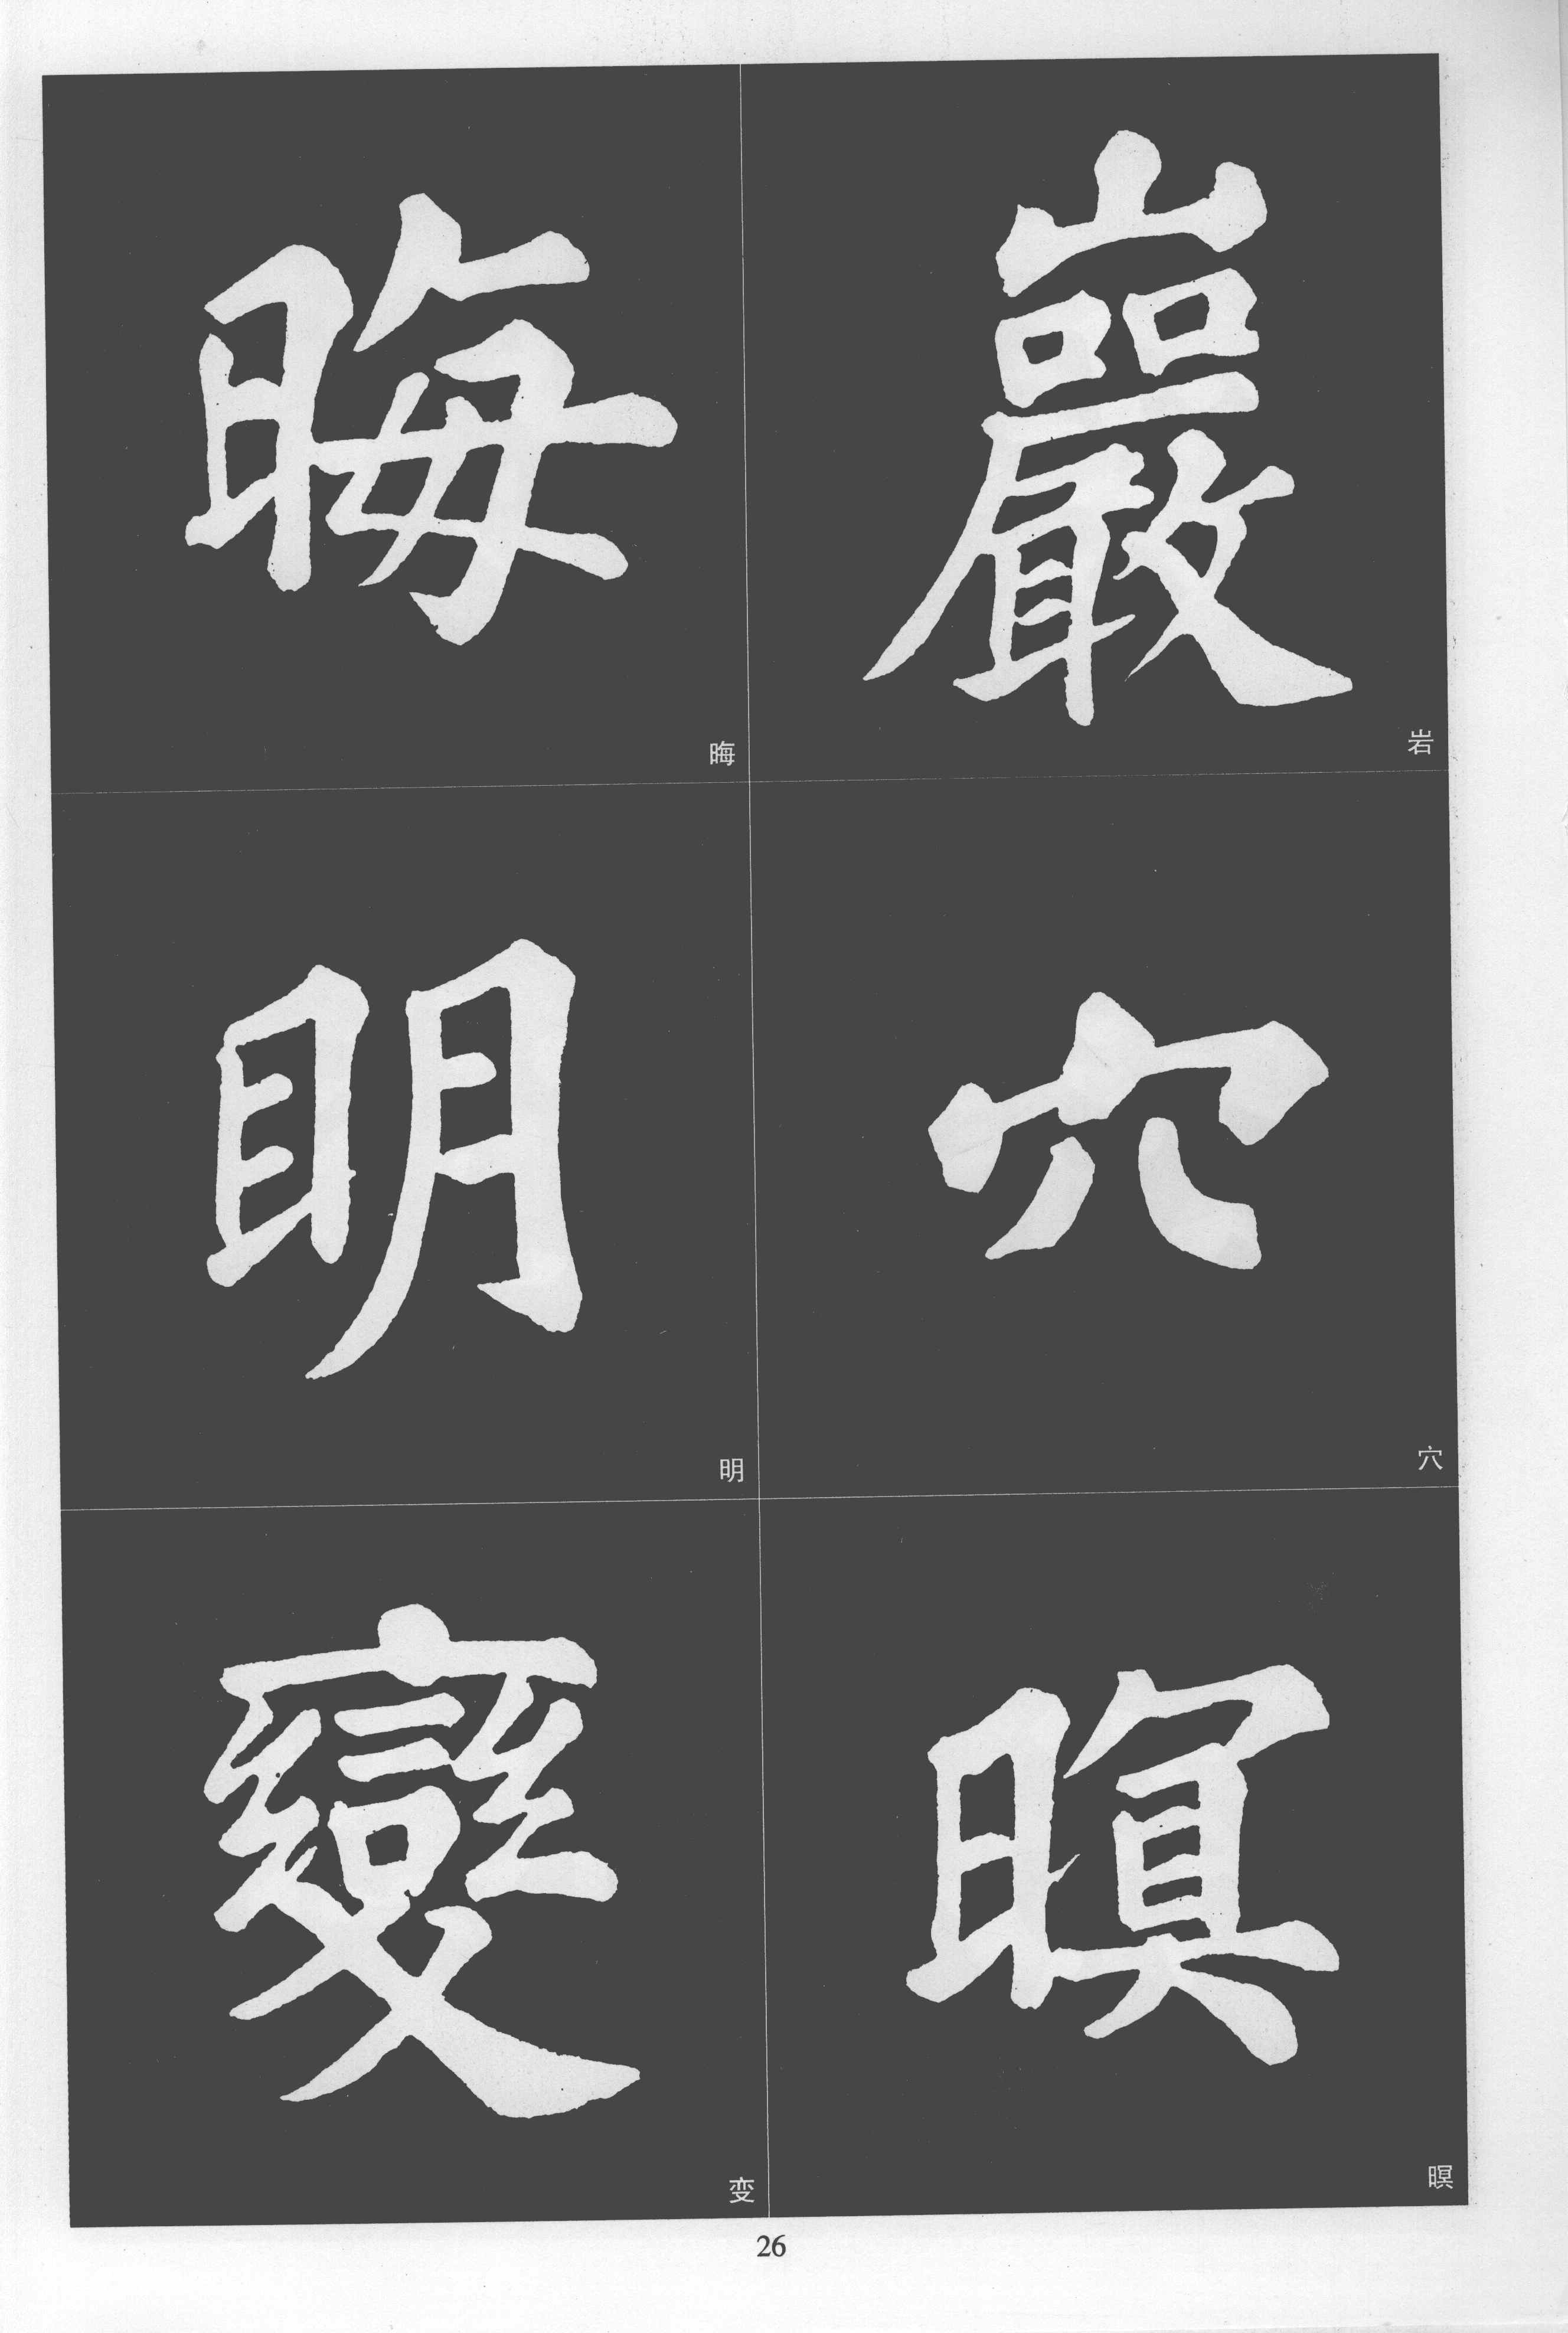 巖穴暝
岩
穴
暝
晦明變
晦
明
变
26